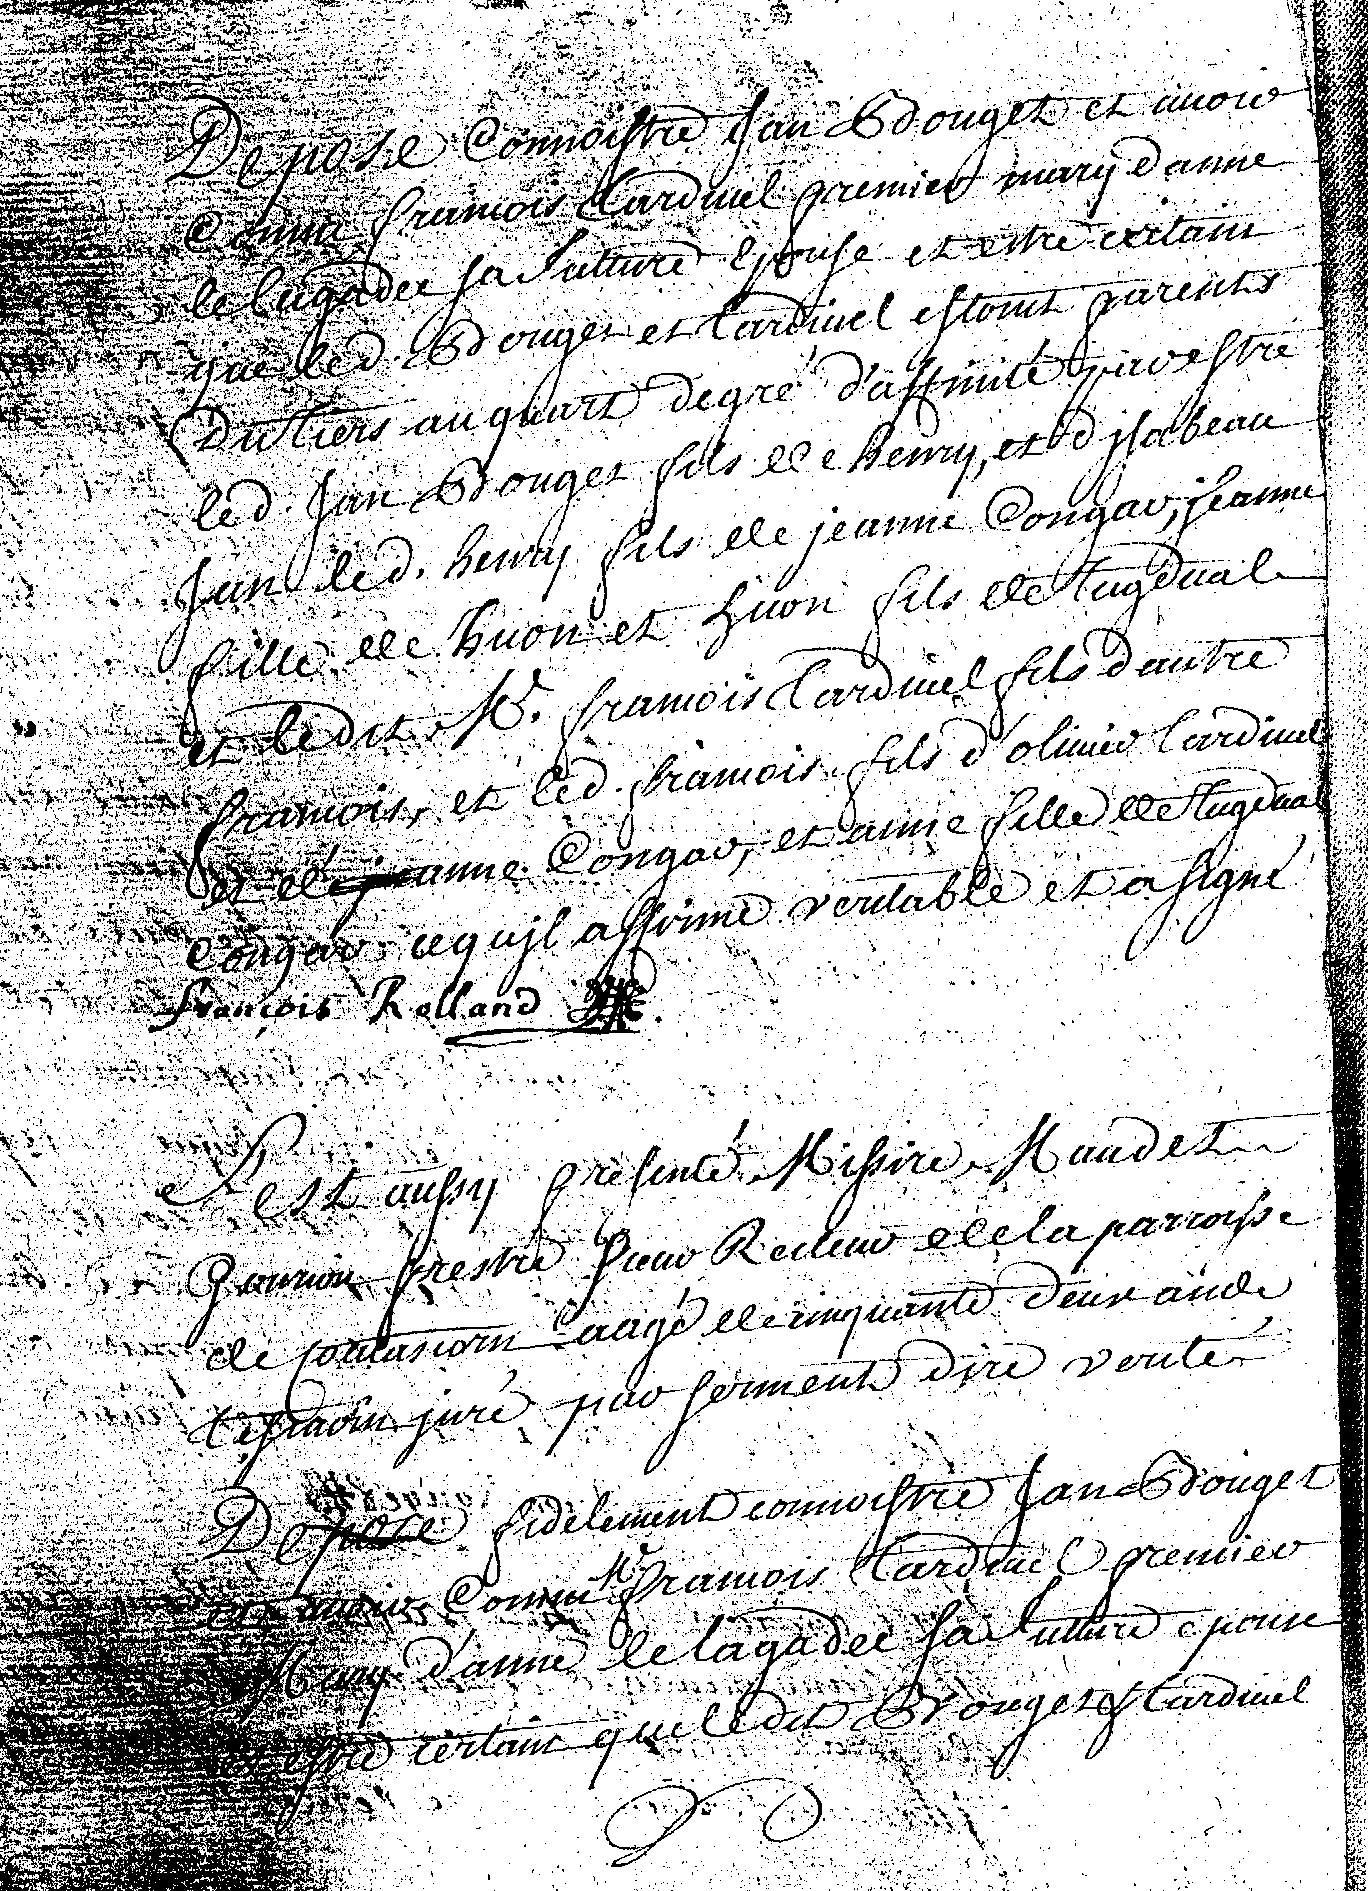 Depose connoistre Jan Bouget et avoir
connu francois Cardinel premier mary d'anne
le lagadec sa future epouse et estre certain
que led. Bouget et Cardinel estoint parents
du tiers au quart degré d'affinité pour estre
led. Jan Bouget fils de henry, et d jsabeau
Jan led. henry fils de jeanne Congar, jeanne
fille de huon et huon fils de tugdual
et ledit Mr. francois Cardinel fils dautre
francois, et led. francois fils d'olivier Cardinel
et d'anne Congar, et anne fille de tugdual
Congar ce qujl affirme veritable et a signé
françois Rolland
S'est aussy presenté Missire Maudet
Gourion prestre sieur Recteur de la parroisse
de aagé de cinquante deux an de
tesmoin juré par serment dire verité
Depose fidelement connoistre Jan Bouget
et avoir connu Mr francois Cardinel premier
Mary d'anne le lagadec sa future epouse
et estre certain que ledit Bouget & Cardinel